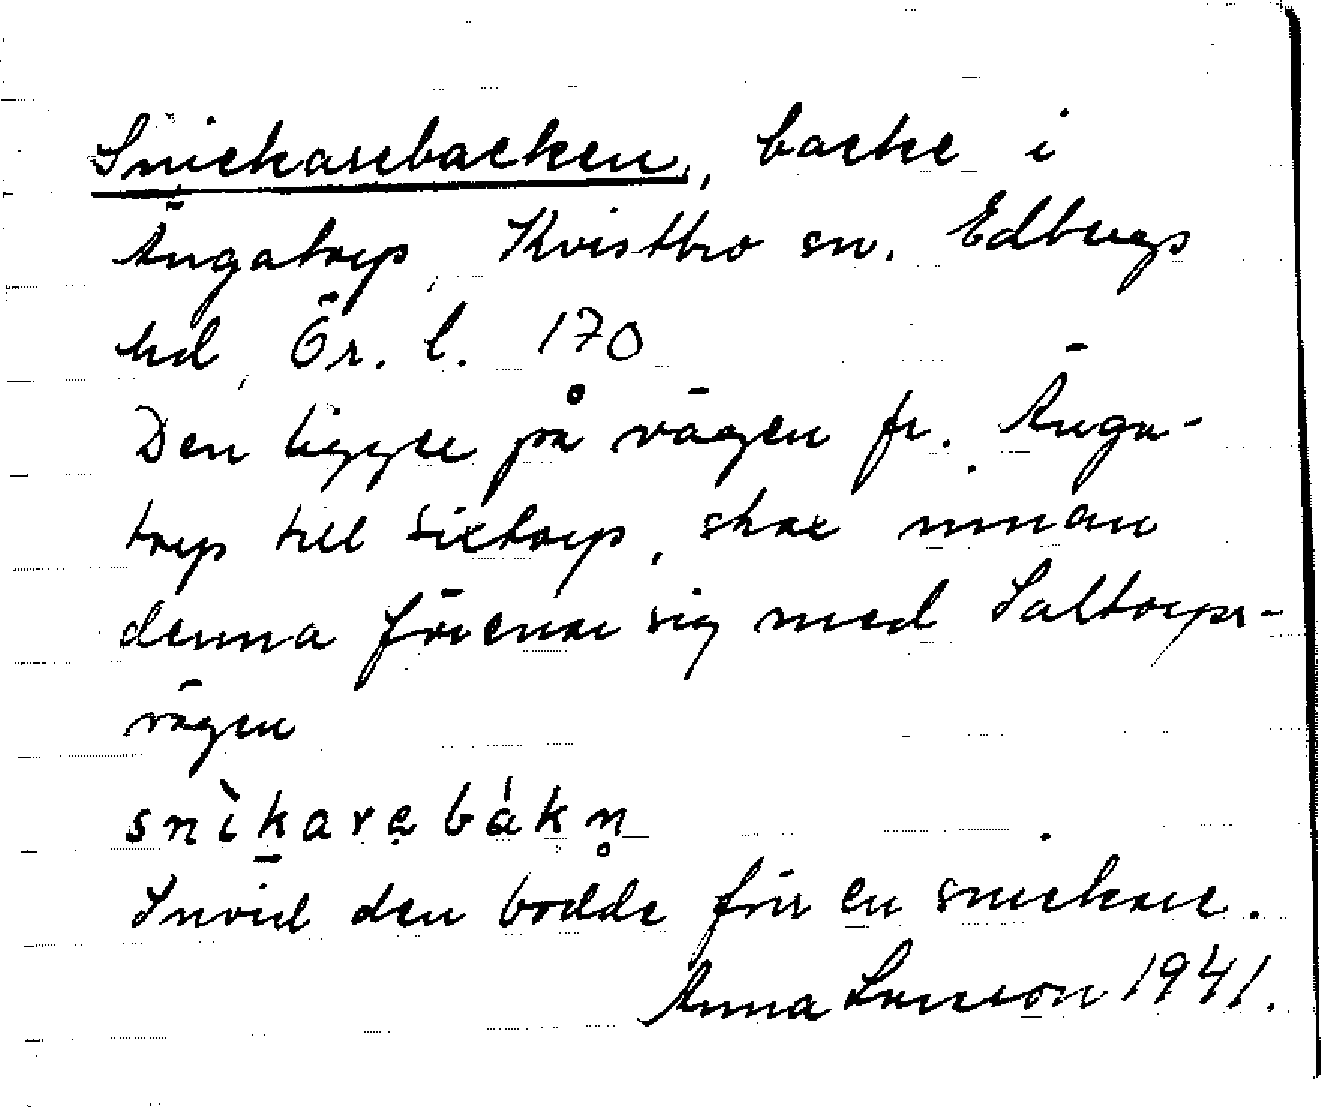 Snickarebacken, backe i
Ängatorp, Kvistbro sn. Edbergs
hd, Ör. l. 170
Den ligger på vägen fr. Änga-
torp till Sixtorp, strax innan
denna förenar sig med Saltorps-
vägen
snìkarebákn̥
Invid den bodde förr en snickare.
Anna Larsson 1941.